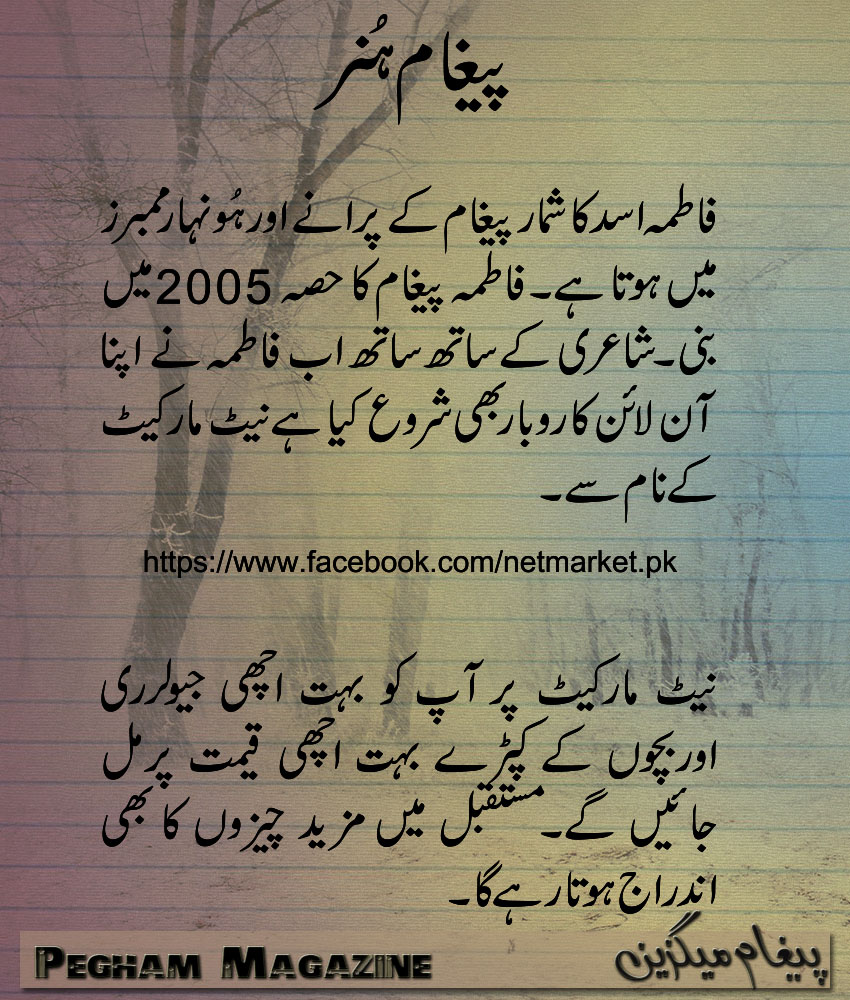 پیغام ہُنر
فاطمہ اسد کا شمار پیغام کے پرانے اور ہُونہار ممبرز
میں ہوتا ہے۔ فاطمہ پیغام کا حصہ 2005 میں
بنی۔ شاعری کے ساتھ ساتھ اب فاطمہ نے اپنا
آن لائن کاروبار بھی شروع کیا ہے نیٹ مارکیٹ
کے نام سے۔
https://www.facebook.com/netmarket.pk
نیٹ مارکیٹ پر آپ کو بہت اچھی جیولرری
اور بچوں کے کپڑے بہت اچھی قیمت پر مل
جائیں گے۔ مستقبل میں مزید چیزوں کا بھی
اندراج ہوتا رہے گا۔
پیغام میگزین
PEGHAM MAGAZINE